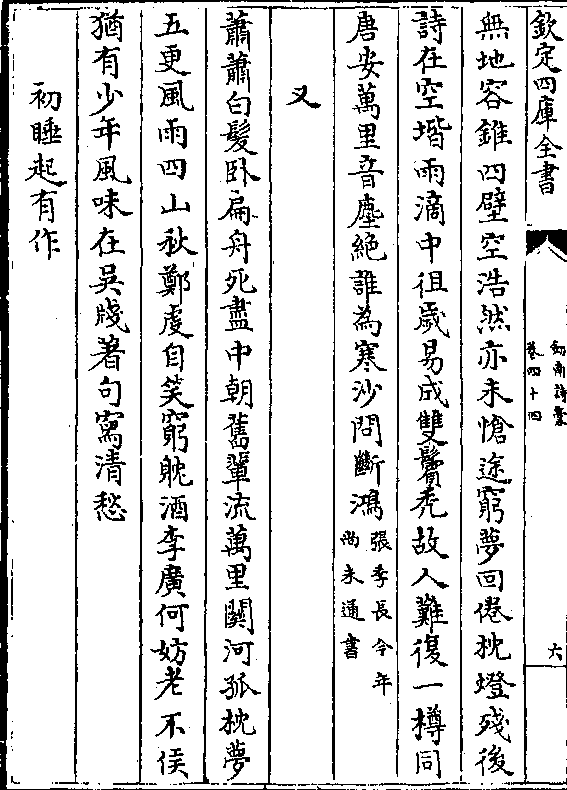 欽定四庫全書
劍南詩稾
卷四十四
六
無地容錐四壁空浩然亦未愴途窮夢回倦枕燈殘後
詩在空堦雨滴中徂歲易成雙鬢禿故人難復一樽同
唐安萬里音塵絶誰為寒沙問斷鴻張季長今年
尚未通書
又
蕭蕭白髮臥扁舟死盡中朝舊輩流萬里關河孤枕夢
五更風雨四山秋鄭虔自笑窮躭酒李廣何妨老不侯
猶有少年風味在吳牋著句寫清愁
初睡起有作